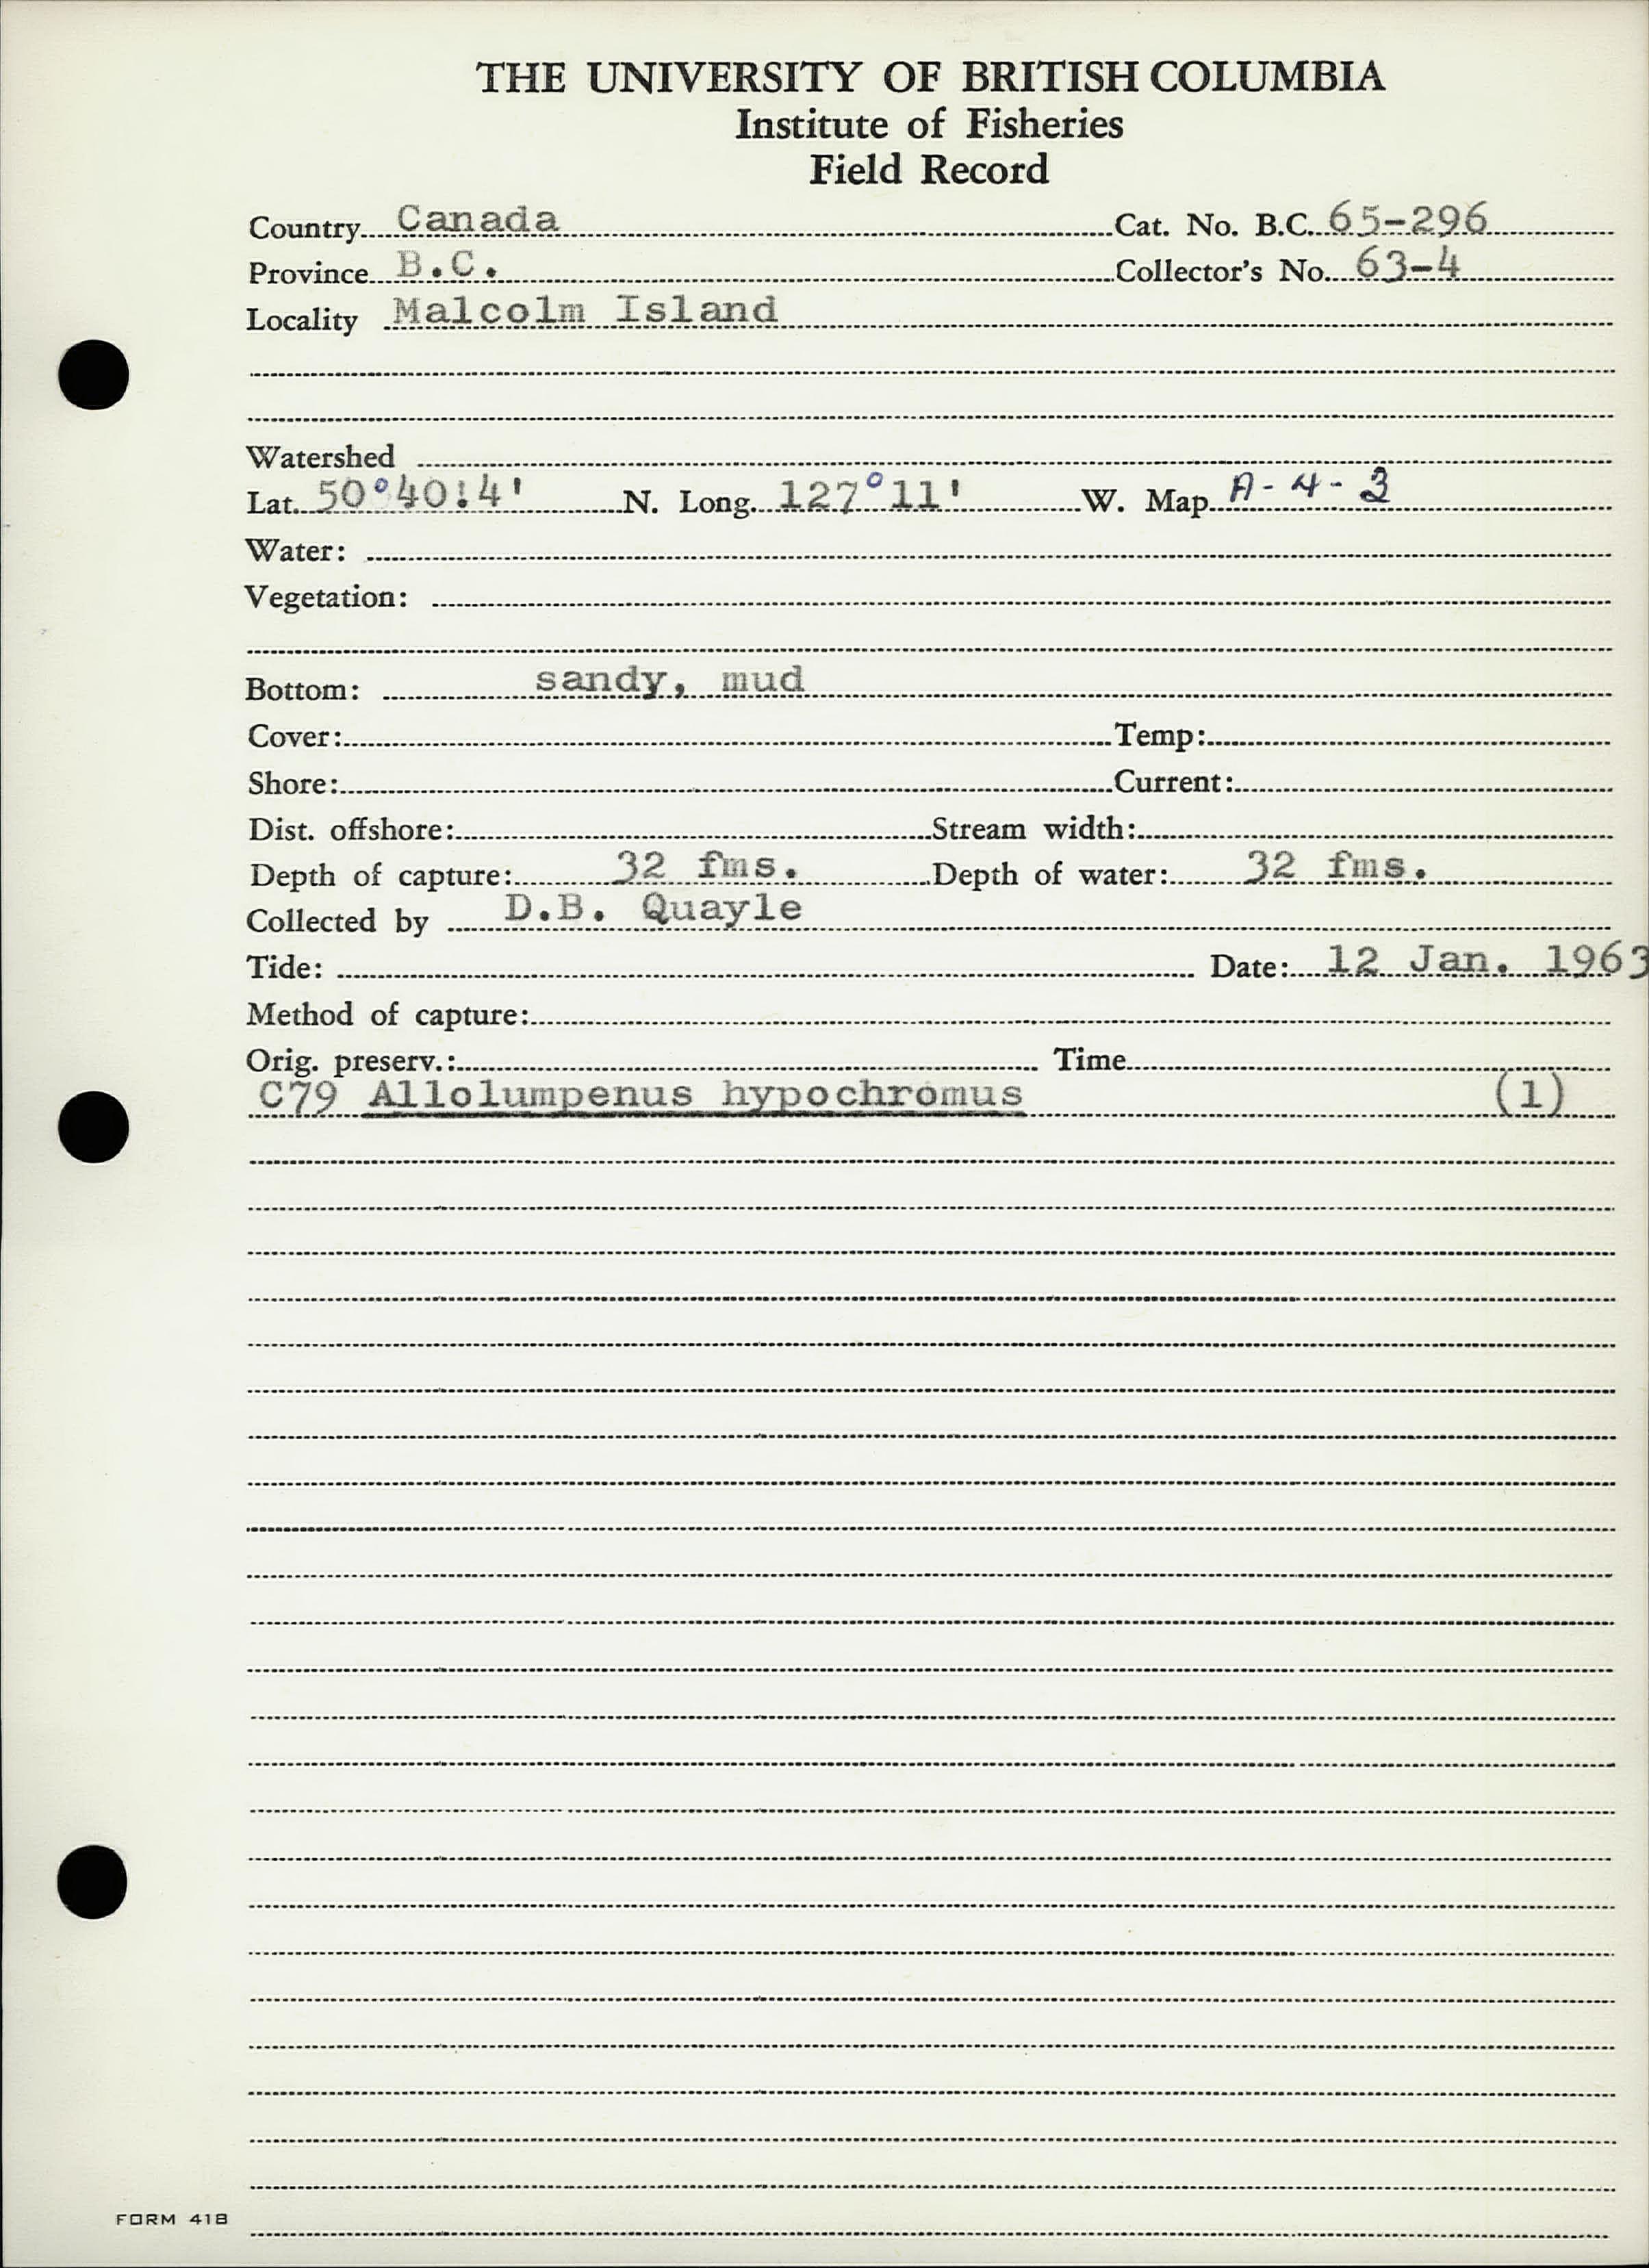 THE UNIVERSITY OF BRITISH COLUMBIA
Institute of Fisheries
Field Record
Country Canada Cat. No. B.C. 65-296
Province B.C. Collector's No. 63-4
Locality Malcolm Island
Watershed
Lat. 50°40!4' N. Long. 127°11' W. Map A-4-3
Water:
Vegetation:
Bottom: sandy, mud
Cover: Temp:
Shore: Current:
Dist. offshore: Stream width:
Depth of capture: 32 fms. Depth of water: 32 fms.
Collected by D.B. Quayle
Tide: Date: 12 Jan. 1963
Method of capture:
Orig. preserv.: Time
C79 Allolumpenus hypochromus (1)
FORM 418